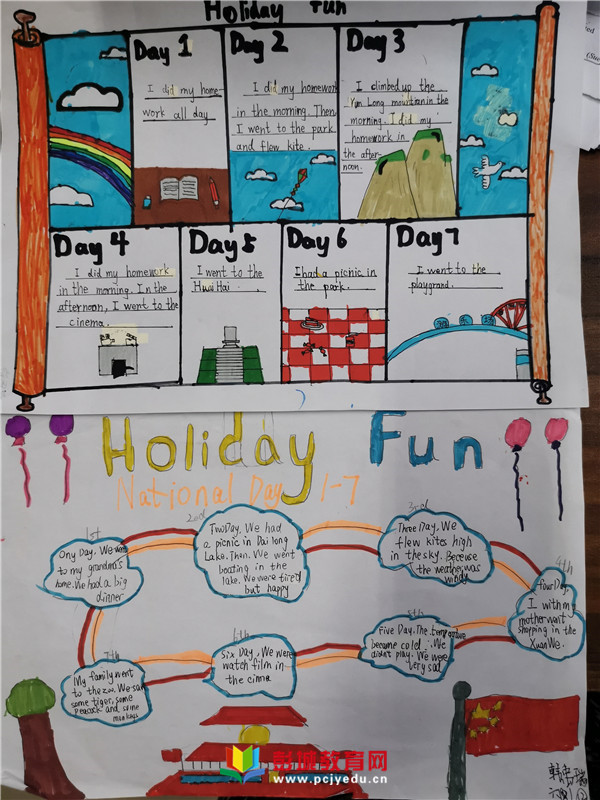 Holiday Fun
Day 1
I did my home-
work all day
Day 2
I did my homework
in the morning. Then
I went to the park
and flew kite.
Day 3
I climbed up the
Yun Long mountain in the
morning. I did my
homework in
the after
noon.
Day 4
I did my homework
in the morning. In the
afternoon, I went to the
cinema.
Day 5
I went to the
Huai Hai
Day 6
I had a picnic in
the park.
Day 7
I went to the
playgrand.
Holiday Fun
National Day 1-7
1st
Ony Day. We went
to my grandma's
home. We had a big
dinner
2nd
Two Day. We had
a picnic in Dai long
Lake. Then. We went
boating in the
lake. We were tired
but happy
3rd
Three Day. We
flew kites high
in the sky. Because
the weather was
windy
4th
four Day.
I with my
mother wait
shopping in the
Xuan We.
5th
Five Day. The temperature
become cold. We
didn't play. We were
very sad
6th
Six Day. We were
watch film in
the cinna
7th
My family went
to the zoo. We saw
some tiger, some
Peacock and some
monkeys
彭城教育网
www.pcjyedu.cn